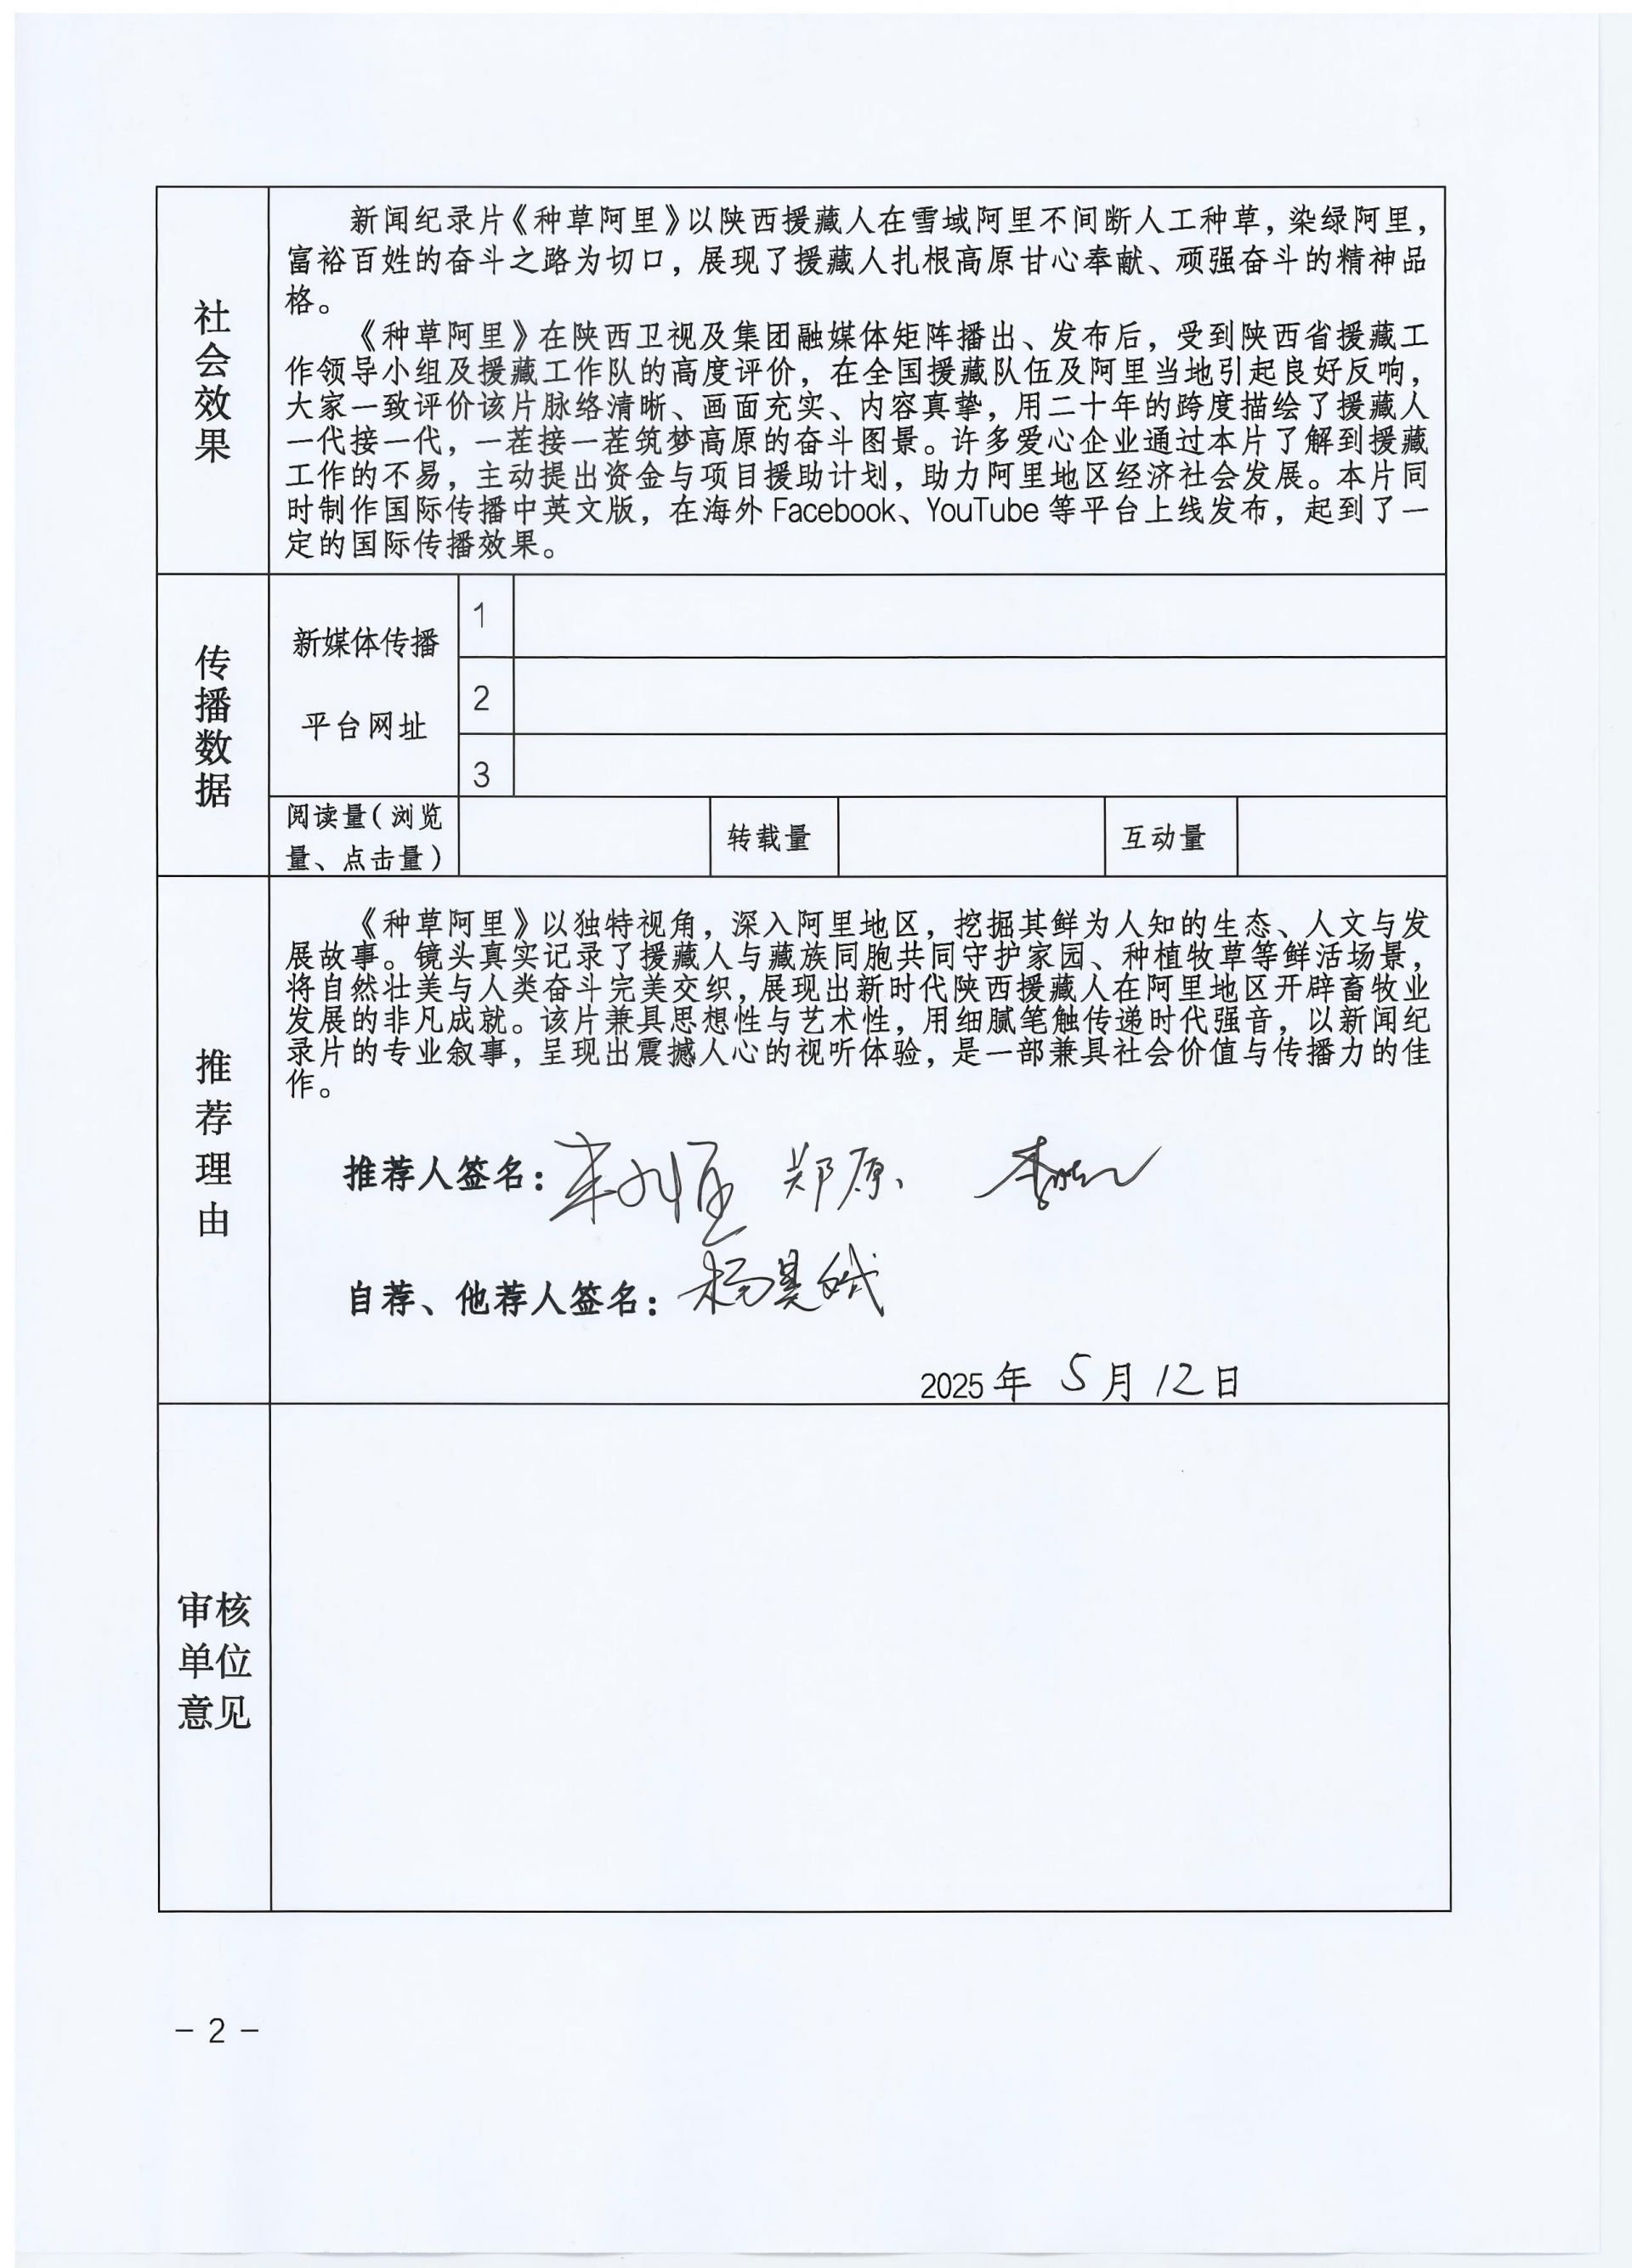 社会效果
新闻纪录片《种草阿里》以陕西援藏人在雪域阿里不间断人工种草，染绿阿里，
富裕百姓的奋斗之路为切口，展现了援藏人扎根高原甘心奉献、顽强奋斗的精神品
格。
《种草阿里》在陕西卫视及集团融媒体矩阵播出、发布后，受到陕西省援藏工
作领导小组及援藏工作队的高度评价，在全国援藏队伍及阿里当地引起良好反响，
大家一致评价该片脉络清晰、画面充实、内容真挚，用二十年的跨度描绘了援藏人
一代接一代，一茬接一茬筑梦高原的奋斗图景。许多爱心企业通过本片了解到援藏
工作的不易，主动提出资金与项目援助计划，助力阿里地区经济社会发展。本片同
时制作国际传播中英文版，在海外 Facebook、YouTube 等平台上线发布，起到了一
定的国际传播效果。
传播数据
新媒体传播
平台网址
1
2
3
阅读量(浏览
量、点击量)
转载量
互动量
推荐理由
《种草阿里》以独特视角，深入阿里地区，挖掘其鲜为人知的生态、人文与发
展故事。镜头真实记录了援藏人与藏族同胞共同守护家园、种植牧草等鲜活场景，
将自然壮美与人类奋斗完美交织，展现出新时代陕西援藏人在阿里地区开辟畜牧业
发展的非凡成就。该片兼具思想性与艺术性，用细腻笔触传递时代强音，以新闻纪
录片的专业叙事，呈现出震撼人心的视听体验，是一部兼具社会价值与传播力的佳
作。
推荐人签名： 郑原
自荐、他荐人签名：
2025 年 5 月 12 日
审核
单位
意见
- 2 -